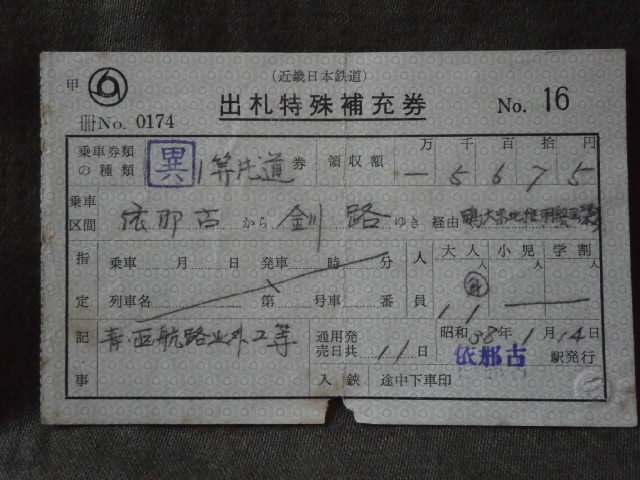 (近畿日本鉄道)
甲
出札特殊補充券 No. 16
冊No. 0174
乗車券類の種類 異 1等片道券 領収額 万千百拾円 一5675
乗車区間 依那古から釧路ゆき 経由
指定 乗車 月 日 発車 時 分 人員 大人 小児 学割
人 人 人
列車名 第 号車 番 1
記事 青・函航路以外2等 通用発売日共 11日 昭和38年1月14日
依那古駅発行
入鋏 途中下車印